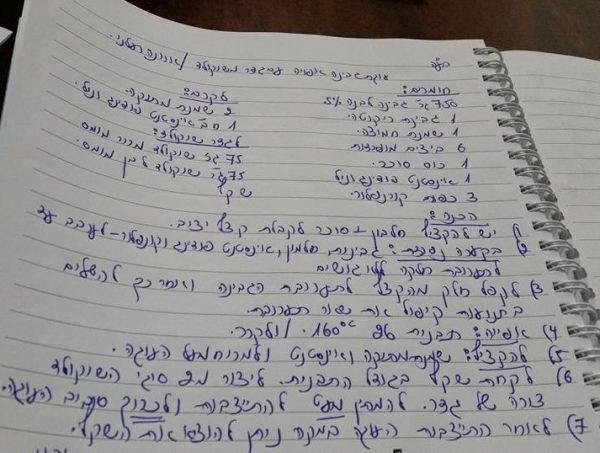 בס"ד
עוגת גבינה אפויה עם גדר משוקולד / אורנה בעלני
חומרים:
750 גר' גבינה לבנה 5%
1 גבינת ריקוטה.
1 שמנת חמוצה.
6 ביצים מופרדות
1 כוס סוכר.
1 אינסטנט פודינג וניל
3 כפות קורנפלור.
לקרם:
2 שמנת מתוקה.
1 חב' אינסטנט פודינג וניל.
לגדר שוקולד:
75 גר' שוקולד מריר מומס
75 גר' שוקולד לבן מומס.
שקף
הכנה:
1) יש להקציף חלבון + סוכר לקבלת קצף יציב.
2) בקערה נוספת: גבינות, חלמון, אינסטנט פודינג וקורנפלור - לערבב עד
לתערובת חלקה ללא גושים
3) לקפל חלק מהקצף לתערובת הגבינה ואחר כך להשלים
בתנועות קיפול את שאר תערובת.
4) אפייה: תבנית 26 160°c. ולקרר.
5) להקציף: שמנת מתוקה ואינסטנט ולמרוח מעל העוגה.
6) לקחת שקף בגודל התבנית. ליצור מ2 סוגי השוקולד
צורה של גדר. להמתין מעט להתייצבות ולכרוך סביב העוגה.
7) לאחר התייצבות העוגה במקרר ניתן להוציא את השקף.